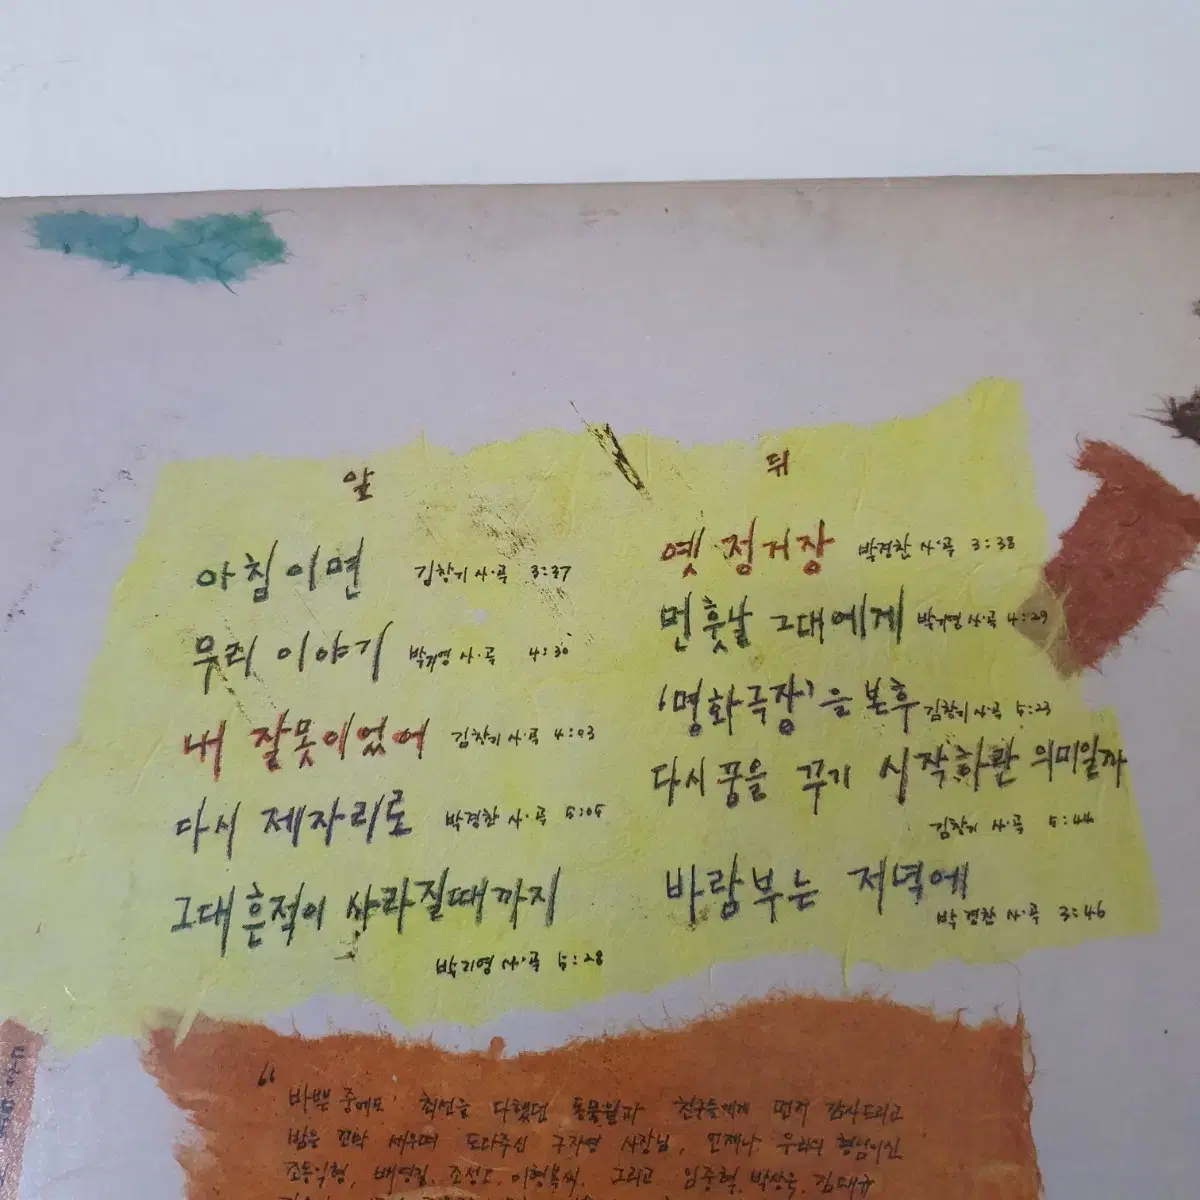 앞
아침이면 김창기 사·곡 3:37
우리 이야기 박기영 사·곡 4:30
내 잘못이었어 김창기 사·곡 4:03
다시 제자리로 박경찬 사·곡 5:05
그대 흔적이 사라질때까지
박기영 사·곡 5:28
뒤
옛 정거장 박경찬 사·곡 3:38
먼 훗날 그대에게 박기영 사·곡 4:29
'명화극장'을 본후 김창기 사·곡 5:23
다시 꿈을 꾸기 시작하란 의미일까
김창기 사·곡 5:44
바람부는 저녁에
박경찬 사·곡 3:46
“바쁜 중에도 최선을 다했던 동물원과 친구들에게 먼저 감사드리고
밤을 꼬박 세우며 도와주신 구자영 사장님, 언제나 우리의 형님이신
조동익형, 배영길, 조성오, 이형복씨, 그리고 임종혁, 박상욱, 김태규